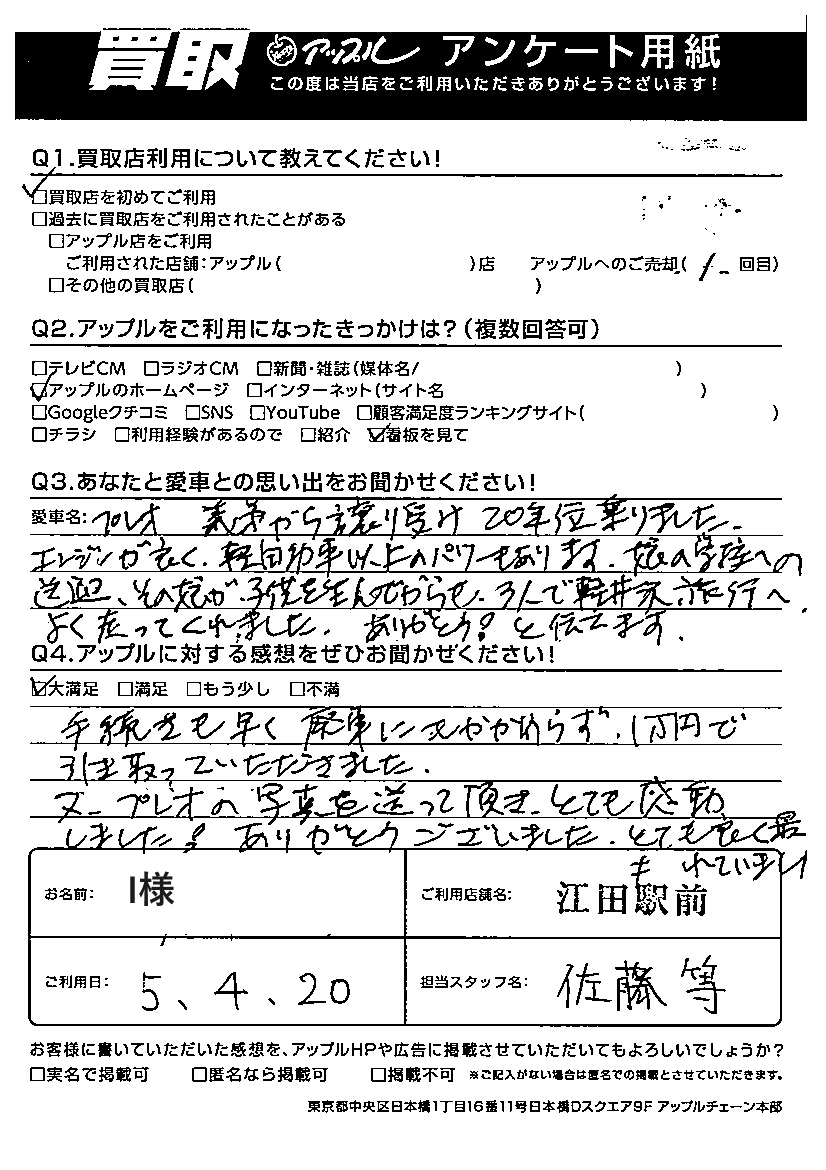 買取 アップル アンケート用紙
この度は当店をご利用いただきありがとうございます!
Q1.買取店利用について教えてください!
☑買取店を初めてご利用
□過去に買取店をご利用されたことがある
□アップル店をご利用
ご利用された店舗:アップル( )店 アップルへのご売却( 1 回目)
□その他の買取店( )
Q2.アップルをご利用になったきっかけは?(複数回答可)
□テレビCM □ラジオCM □新聞・雑誌(媒体名/ )
☑アップルのホームページ □インターネット(サイト名 )
□Googleクチコミ □SNS □YouTube □顧客満足度ランキングサイト( )
□チラシ □利用経験があるので □紹介 ☑看板を見て
Q3.あなたと愛車との思い出をお聞かせください!
愛車名:プレオ 義弟から譲り受け 20年位乗りました。
エンジンが良く、軽自動車以上のパワーもあります。娘の学校への
送迎、その娘が子供を生んでからも、3人で軽井沢旅行へ
よく走ってくれました。ありがとう!と伝えます。
Q4.アップルに対する感想をぜひお聞かせください!
☑大満足 □満足 □もう少し □不満
手続きも早く 廃車にもかかわらず、1万円で
引き取っていただきました。
又、プレオの写真を送って頂き、とても感動
しました! ありがとうございました。とても良く最
お名前: I様 ご利用店舗名: 江田駅前
ご利用日: 5、4、20 担当スタッフ名: 佐藤 等
お客様に書いていただいた感想を、アップルHPや広告に掲載させていただいてもよろしいでしょうか?
□実名で掲載可 □匿名なら掲載可 □掲載不可 ※ご記入がない場合は匿名での掲載とさせていただきます。
東京都中央区日本橋1丁目16番11号日本橋Dスクエア9F アップルチェーン本部